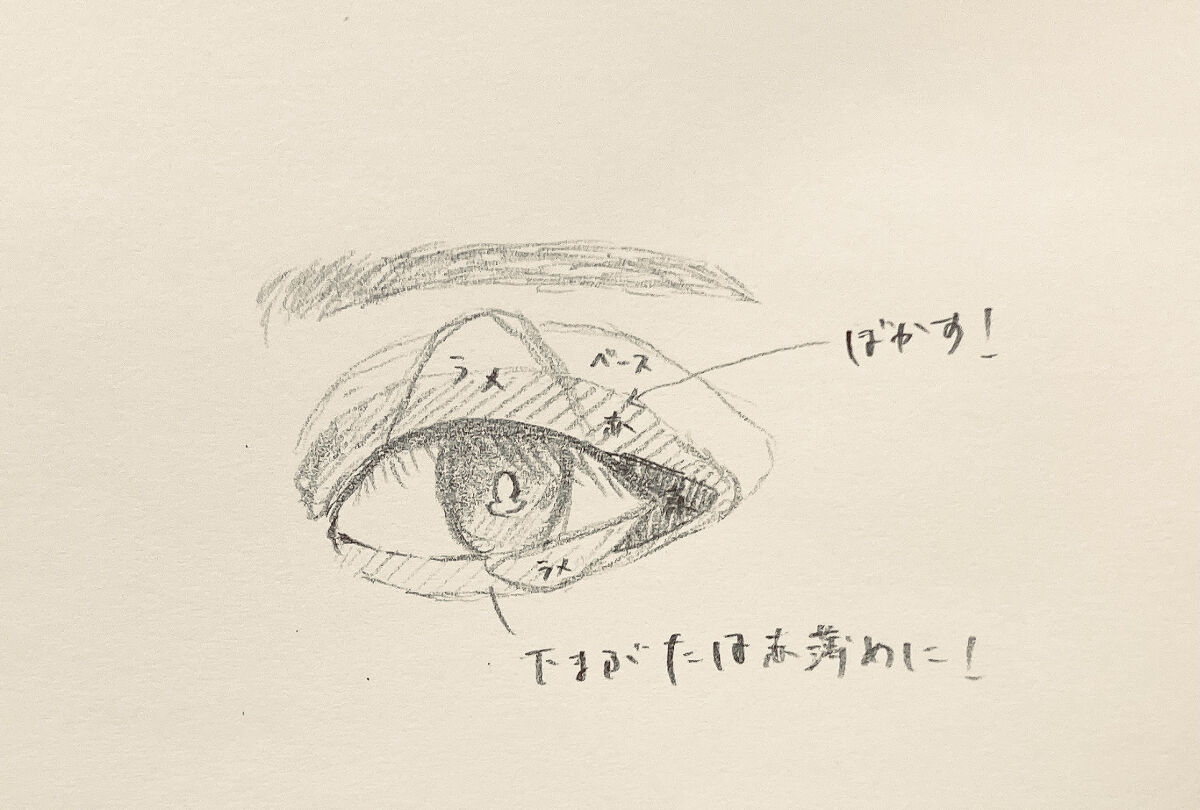 ぼかす!
ベース
ラメ
赤
ラメ
下まぶたは赤薄めに!